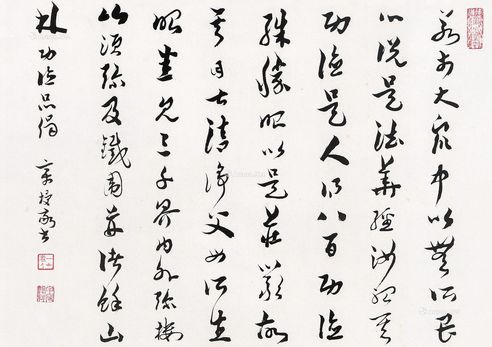 若於大眾中以無所畏
心說是法華經汝聽其
功德是人得八百功德
殊勝眼以是莊嚴故
其目甚清淨父母所生
眼見三千界內外彌樓
山須彌及鐵圍并諸餘山
林 功德品偈